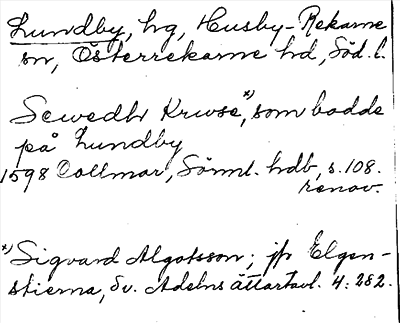 Lundby, hg, Husby-Rekarne
sn, Österrekarne hd, Söd. l.
Sewedh Krwse x), som bodde
på Lundby
1598 Collmar, Sörml. hdb, s. 108.
renov.
x) Sigvard Algotsson; jfr Elgen-
stierna, Sv. Adelns ättartavl. 4: 282.